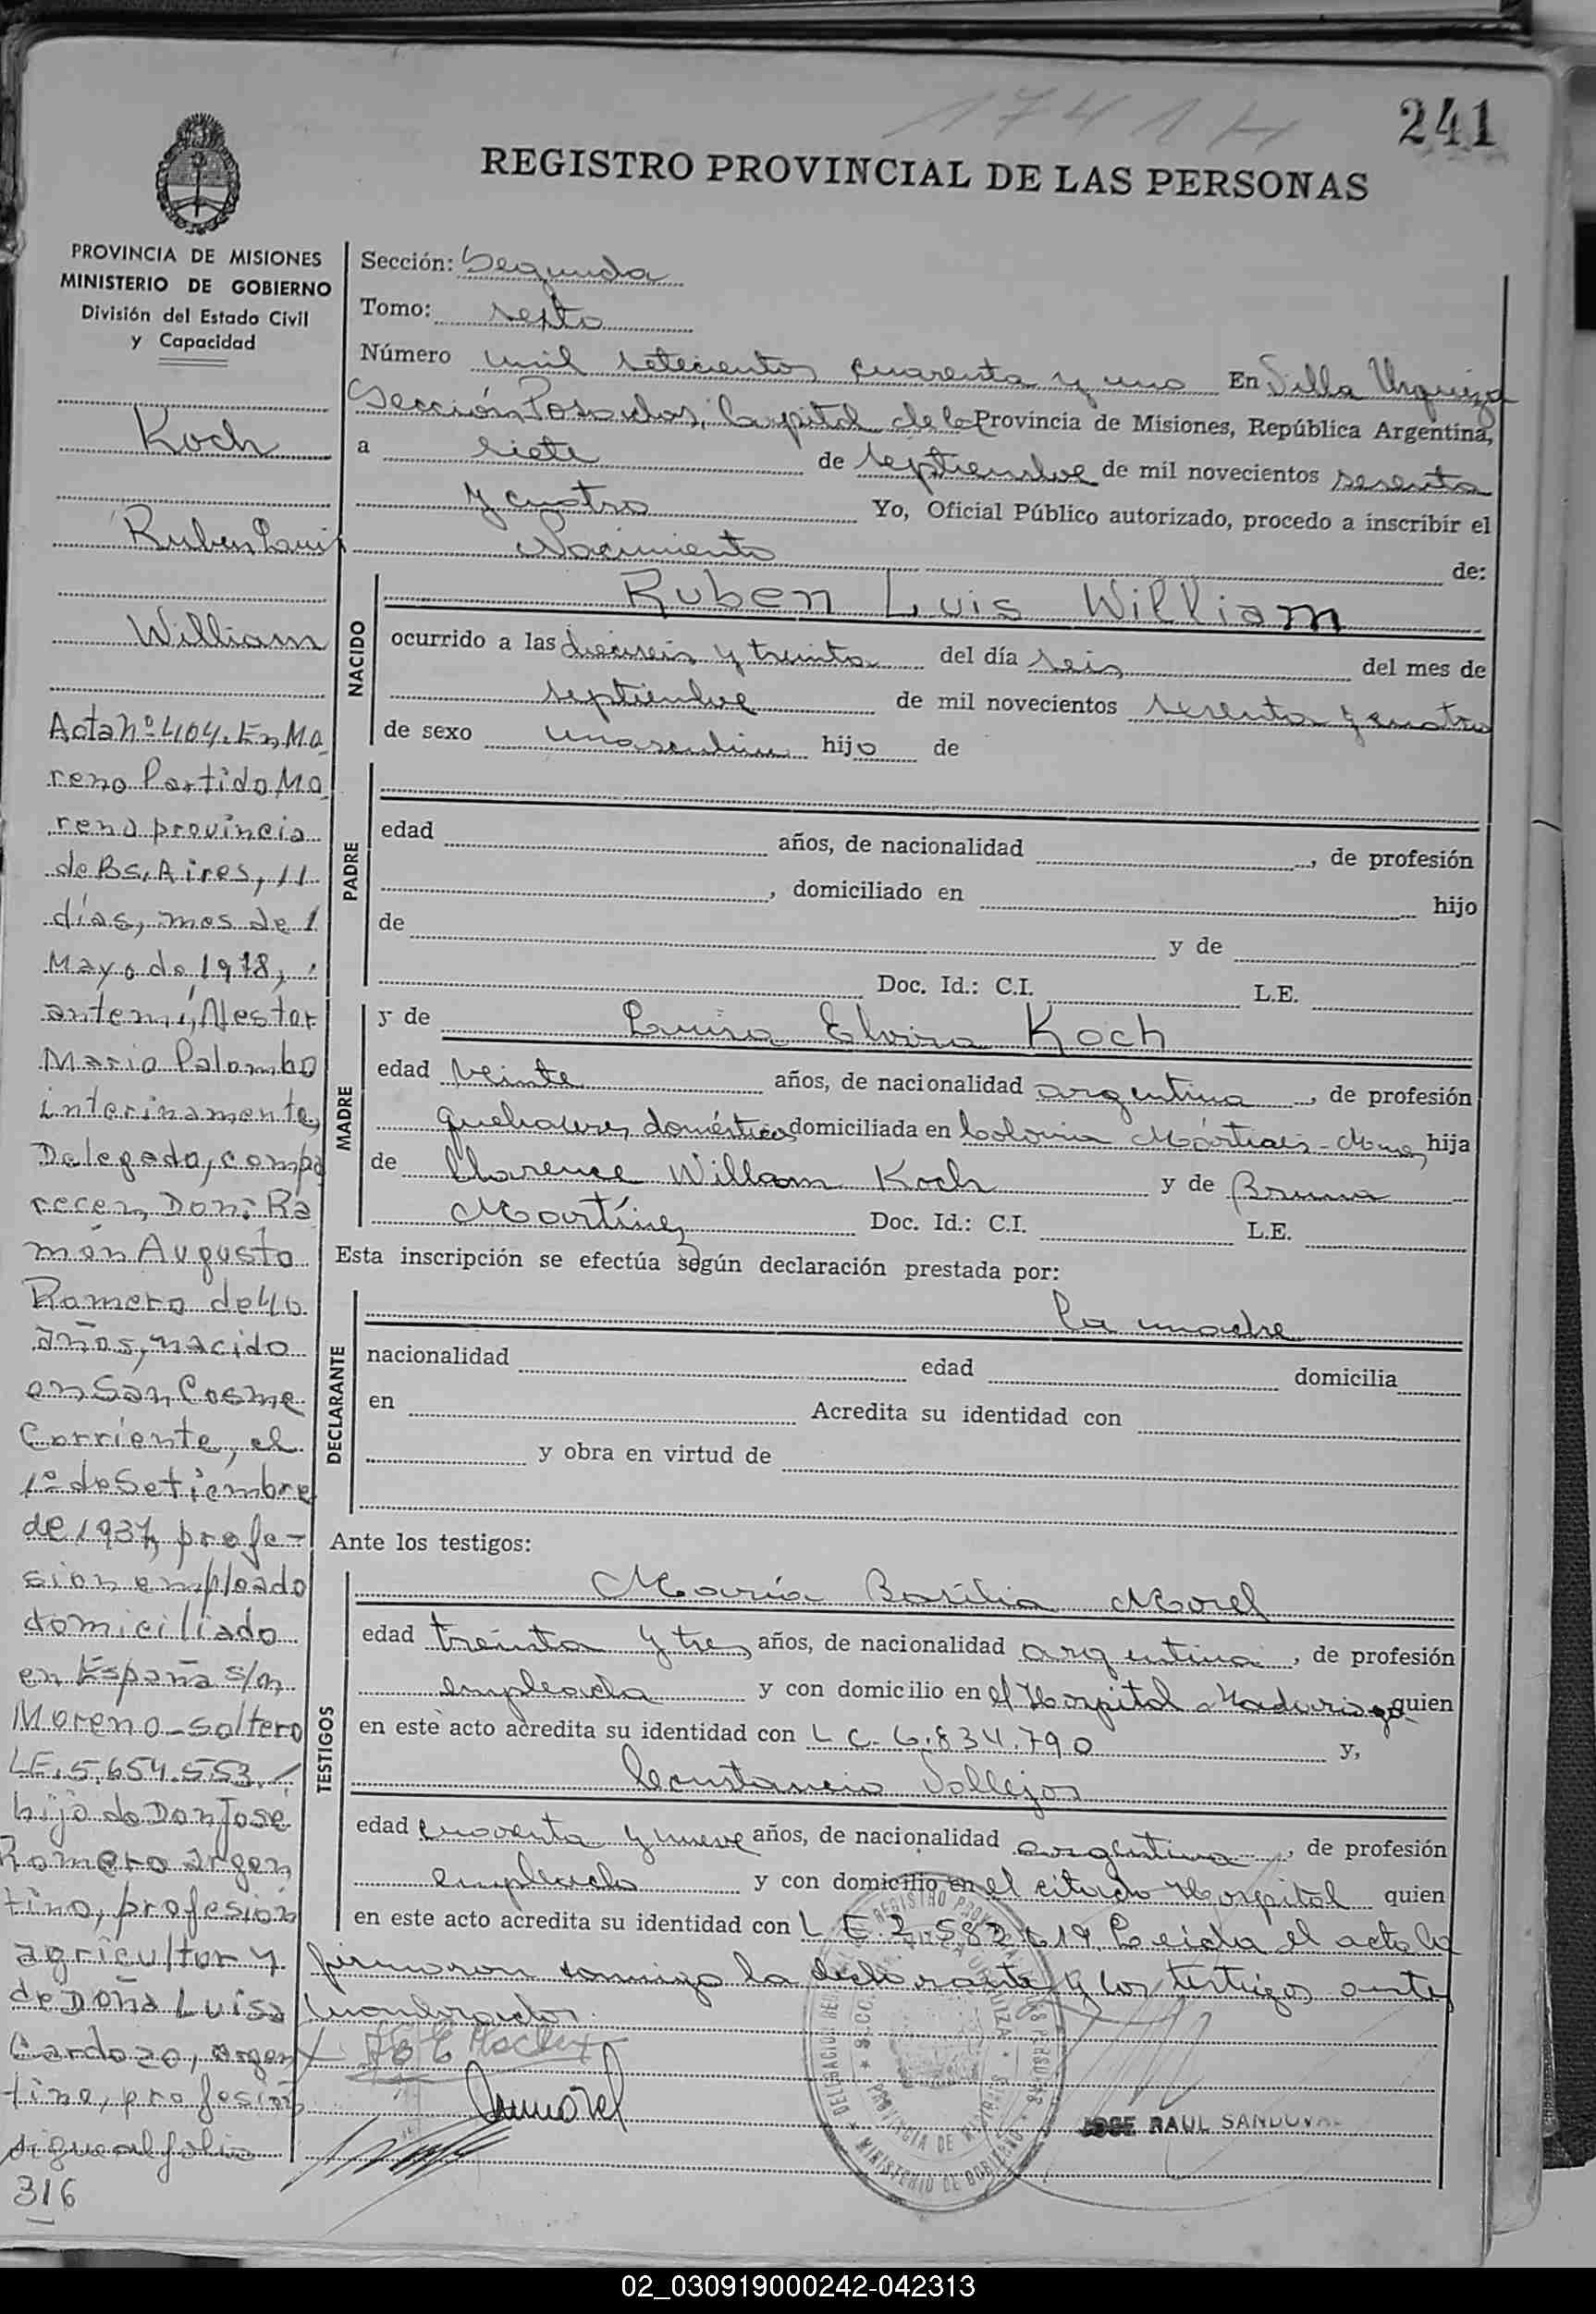 1741 H
241
REGISTRO PROVINCIAL DE LAS PERSONAS
PROVINCIA DE MISIONES
MINISTERIO DE GOBIERNO
División del Estado Civil
y Capacidad
Koch
Ruben Luis
William
Acta nº 404. En Mo
reno Partido Mo
reno provincia
de Bs. Aires, 11
días, mes de
Mayo de 1978,
ante mí, Nestor
Mario Palombo
interinamente,
Delegado, compa
recen, Don: Ra
món Augusto
Romero de 40
años, nacido
en San Cosme
Corriente, el
1º de Setiembre
de 1937, profe-
sion empleado
domiciliado
en España s/n
Moreno - soltero
LE. 5.654.553.
hijo de Don José
Romero argen
tino, profesión
agricultor y
de Doña Luisa
Cardozo, argen
tina, profesión
sigue al folio
316
Sección: Segunda
Tomo: sexto
Número mil setecientos cuarenta y uno En Villa Urquiza
Sección Posadas, Capital de la Provincia de Misiones, República Argentina,
a siete de septiembre de mil novecientos sesenta
y cuatro Yo, Oficial Público autorizado, procedo a inscribir el
Nacimiento de:
NACIDO
Ruben Luis William
ocurrido a las dieciseis y treinta del día seis del mes de
septiembre de mil novecientos sesenta y cuatro
de sexo masculino hijo de
PADRE
edad años, de nacionalidad , de profesión
, domiciliado en hijo
de y de
Doc. Id.: C.I. L.E.
MADRE
y de Luisa Elvira Koch
edad veinte años, de nacionalidad argentina, de profesión
quehaceres domésticos domiciliada en Colonia Mártires - Mnes, hija
de Clarence Willam Koch y de Bruna
Martínez Doc. Id.: C.I. L.E.
Esta inscripción se efectúa según declaración prestada por:
DECLARANTE
La madre
nacionalidad edad domicilia
en Acredita su identidad con
y obra en virtud de
Ante los testigos:
TESTIGOS
María Basilia Morel
edad treinta y tres años, de nacionalidad argentina, de profesión
empleada y con domicilio en el Hospital Madariaga quien
en este acto acredita su identidad con L C. 6.834.790 y,
Constancio Vallejos
edad cuarenta y nueve años, de nacionalidad argentina, de profesión
empleado y con domicilio en el citado Hospital quien
en este acto acredita su identidad con L. E. 2.582.619. Leida el acta la
firmaron conmigo la declarante y los testigos antes
nombrados.
JOSE RAUL SANDOVAL
02_030919000242-042313